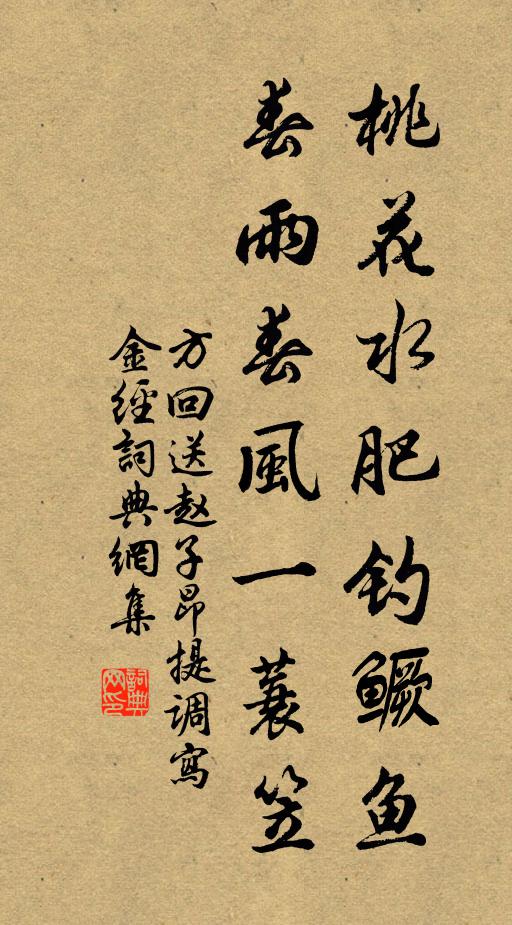 桃花水肥钓鳜鱼
春雨春風一蓑笠
方回送赵子昂提调寫
金經詞典網集
詞典網印